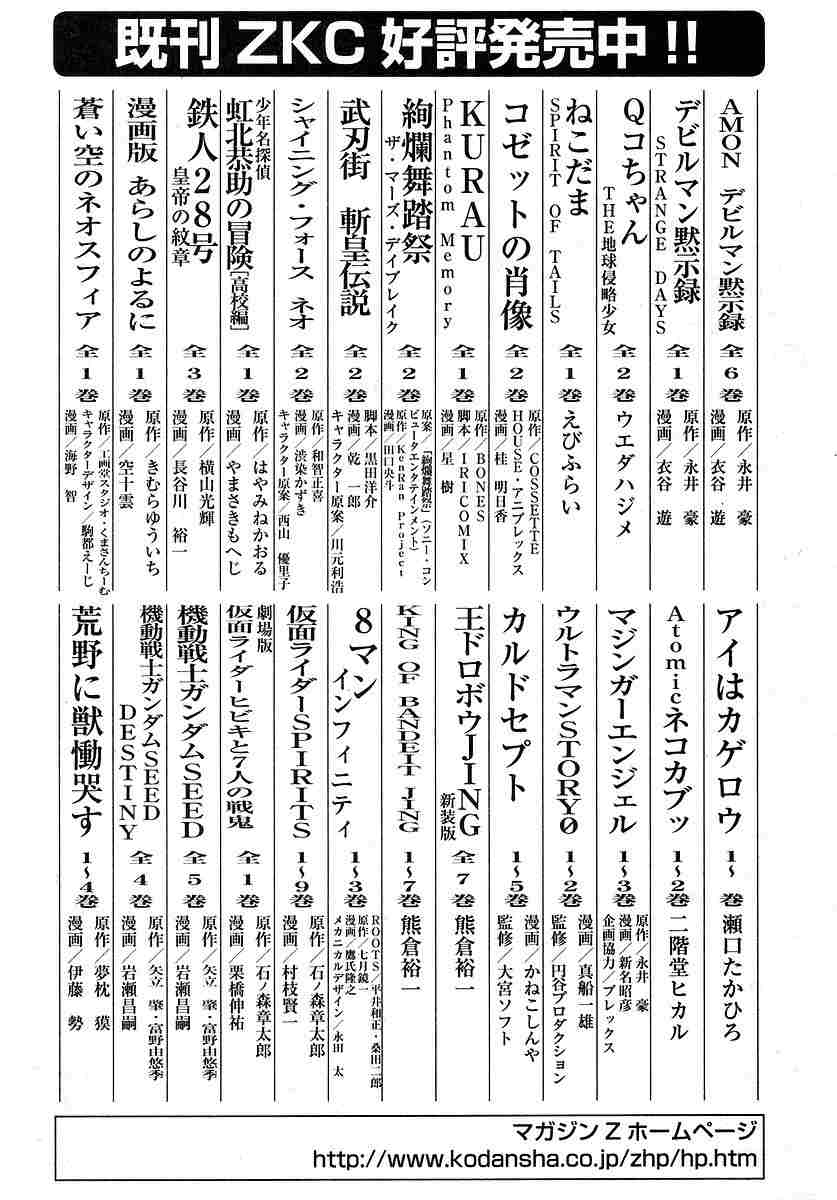 既刊 ZKC 好評発売中!!
AMON デビルマン黙示録 全6巻
原作／永井 豪
漫画／衣谷 遊
デビルマン黙示録
STRANGE DAYS 全1巻
原作／永井 豪
漫画／衣谷 遊
Qコちゃん
THE地球侵略少女 全2巻
ウエダハジメ
ねこだま
SPIRIT OF TAILS 全1巻
えびふらい
コゼットの肖像 全2巻
原作／COSSETTE
HOUSE・アニプレックス
漫画／桂 明日香
KURAU
Phantom Memory 全1巻
原作／BONES
脚本／IRICOMIX
漫画／星 樹
絢爛舞踏祭
ザ・マーズ・デイブレイク 全2巻
原案／「絢爛舞踏祭」（ソニー・コン
ピュータエンタテインメント）
原作／KenRan Project
漫画／田口央斗
武刃街 斬皇伝説 全2巻
脚本／黒田洋介
漫画／乾 一郎
キャラクター原案／川元利浩
シャイニング・フォース ネオ 全2巻
原作／和智正喜
漫画／渋染かずき
キャラクター原案／西山 優里子
少年名探偵
虹北恭助の冒険［高校編］ 全1巻
原作／はやみねかおる
漫画／やまさきもへじ
鉄人28号
皇帝の紋章 全3巻
原作／横山光輝
漫画／長谷川 裕一
漫画版 あらしのよるに 全1巻
原作／きむらゆういち
漫画／空十雲
蒼い空のネオスフィア 全1巻
原作／工画堂スタジオ・くまさんちーむ
キャラクターデザイン／駒都えーじ
漫画／海野 智
アイはカゲロウ 1〜 巻
瀬口たかひろ
Atomicネコカブッ 1〜2巻
二階堂ヒカル
マジンガーエンジェル 1〜3巻
原作／永井 豪
漫画／新名昭彦
企画協力／ブレックス
ウルトラマンSTORY0 1〜2巻
漫画／真船一雄
監修／円谷プロダクション
カルドセプト 1〜5巻
漫画／かねこしんや
監修／大宮ソフト
王ドロボウJING
新装版 全7巻
熊倉裕一
KING OF BANDEIT JING 1〜7巻
熊倉裕一
8マン
インフィニティ 1〜3巻
ROOTS／平井和正・桑田二郎
原作／七月鏡一
漫画／鷹氏隆之
メカニカルデザイン／永田 太
仮面ライダーSPIRITS 1〜9巻
原作／石ノ森章太郎
漫画／村枝賢一
劇場版
仮面ライダーヒビキと7人の戦鬼 全1巻
原作／石ノ森章太郎
漫画／栗橋伸祐
機動戦士ガンダムSEED 全5巻
原作／矢立 肇・富野由悠季
漫画／岩瀬昌嗣
機動戦士ガンダムSEED
DESTINY 全4巻
原作／矢立 肇・富野由悠季
漫画／岩瀬昌嗣
荒野に獣慟哭す 1〜4巻
原作／夢枕 獏
漫画／伊藤 勢
マガジンZホームページ
http://www.kodansha.co.jp/zhp/hp.htm